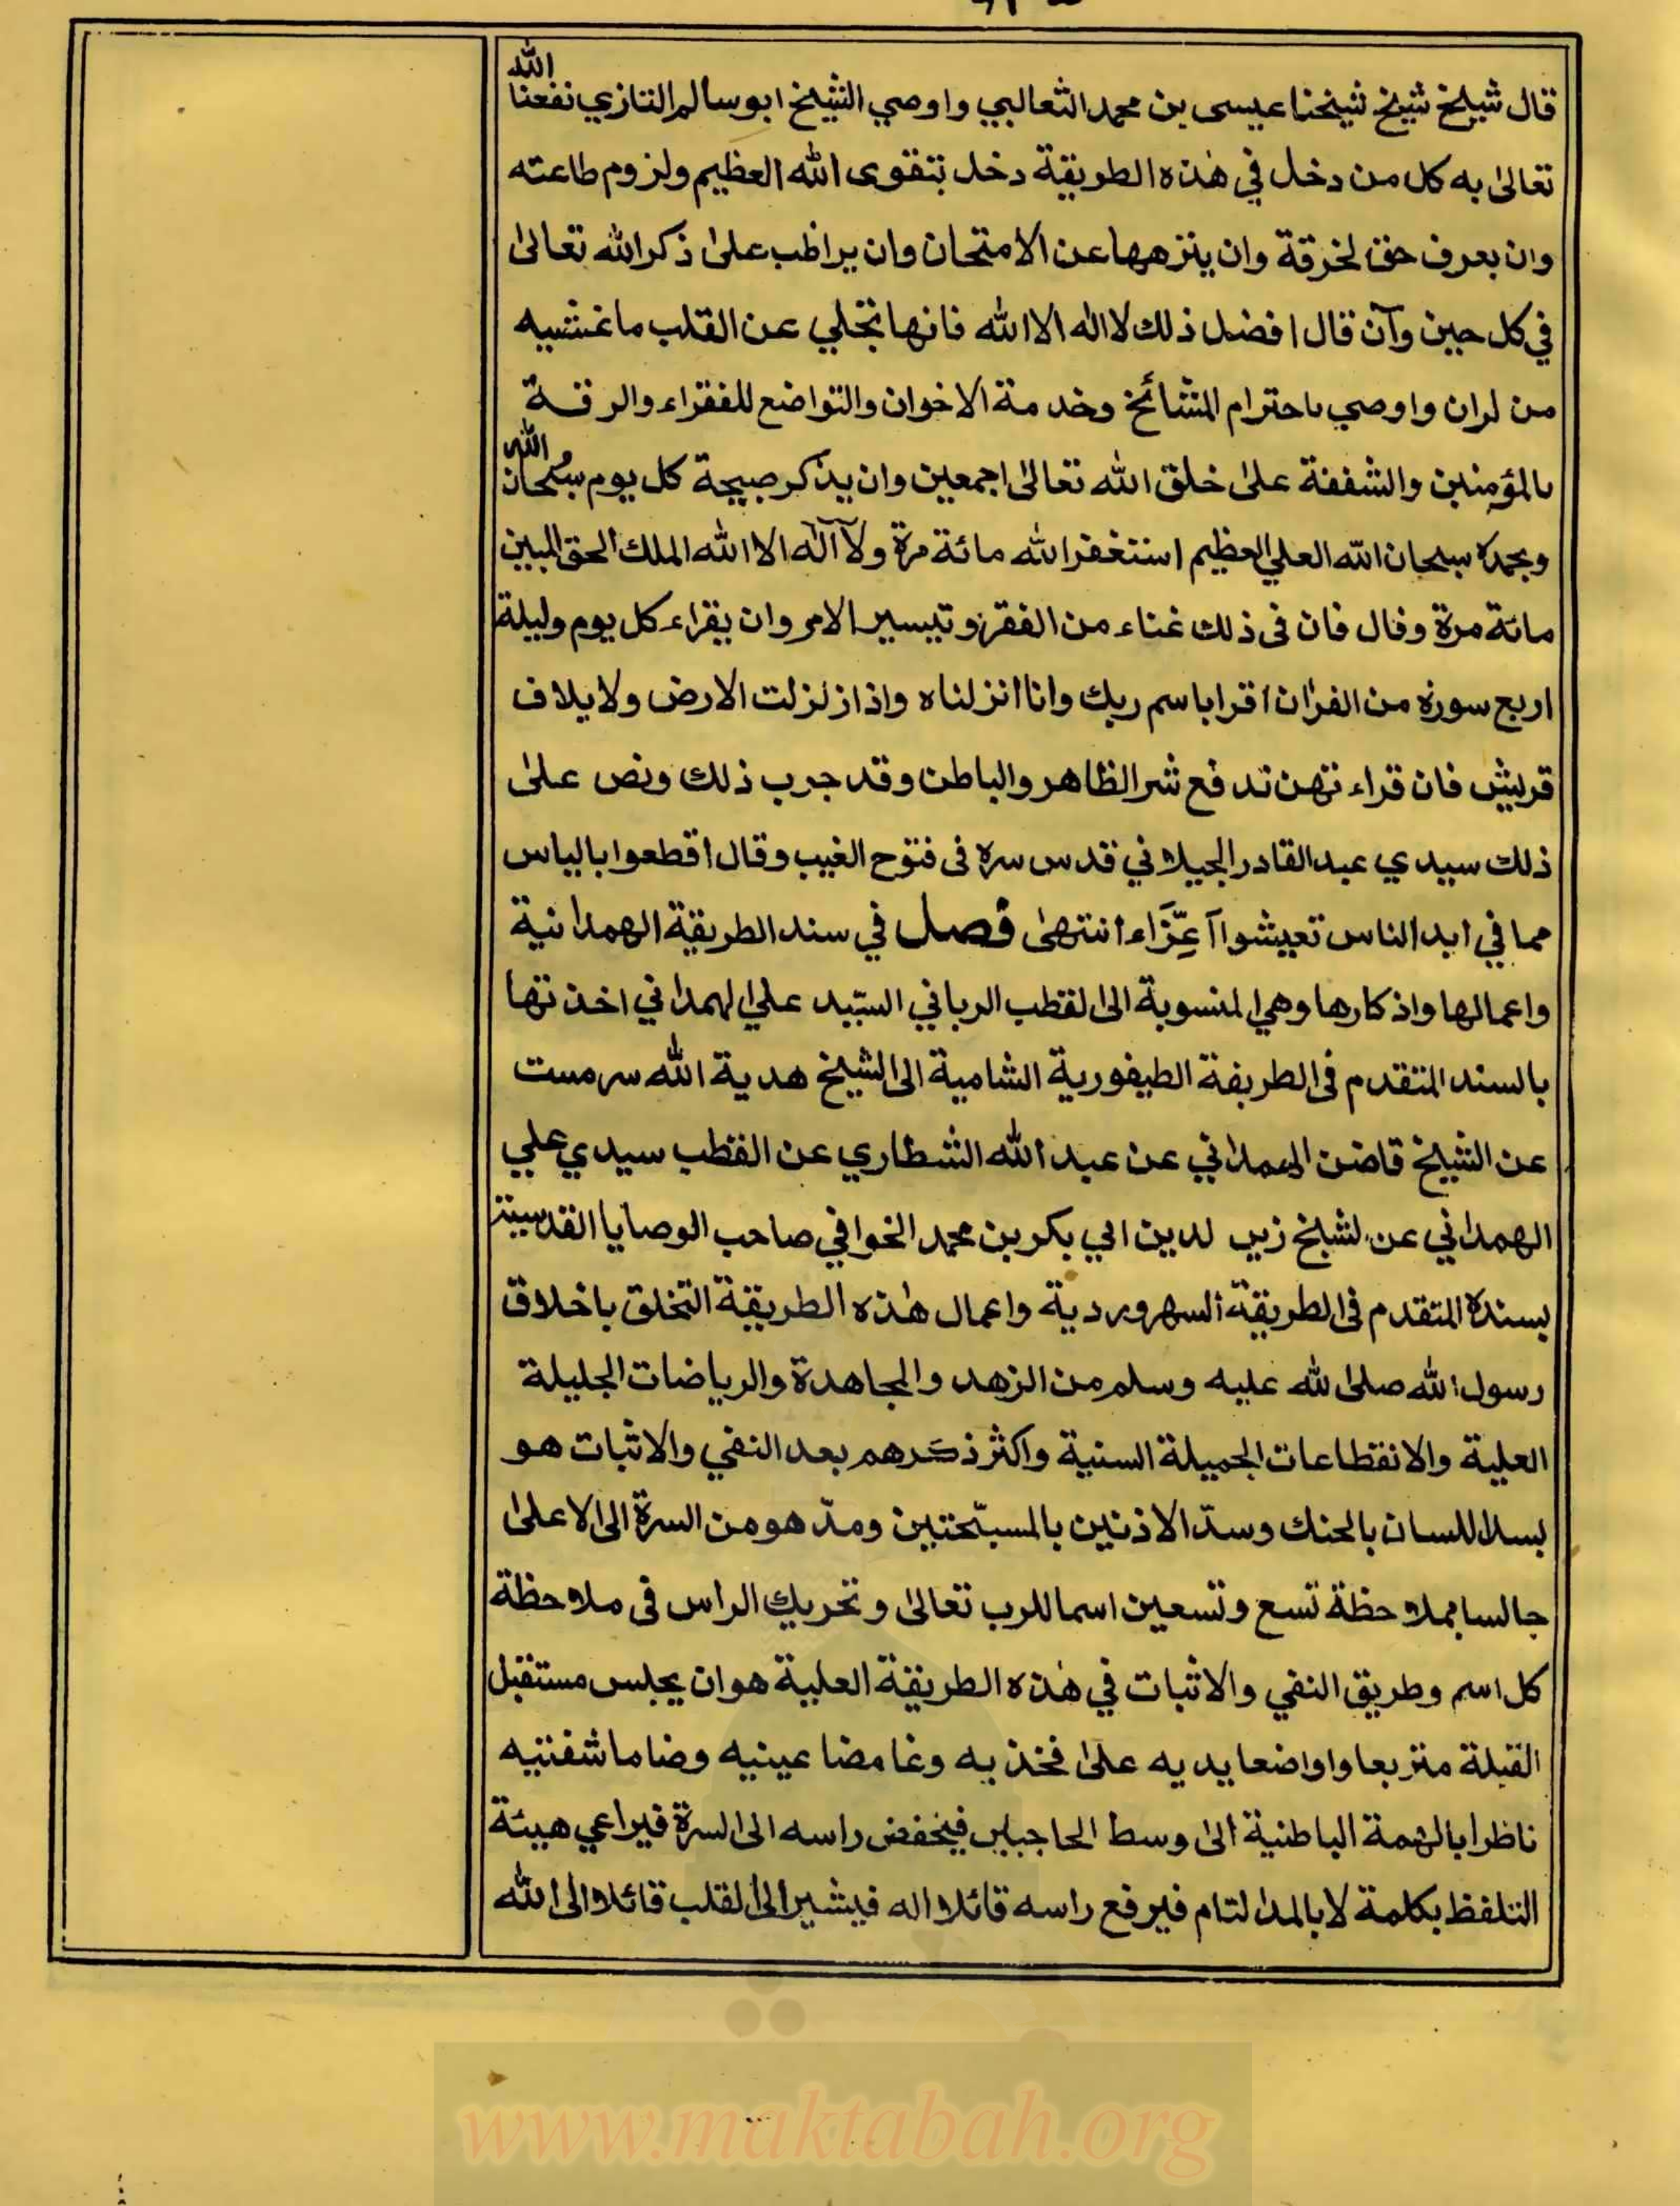 قال شيخ شيخ شيخنا عيسى بن محمد الثعالبي واوصي الشيخ ابوسالم التازي نفعنا الله
تعالى به كل من دخل في هذه الطريقة دخل بتقوى الله العظيم ولزوم طاعته
وان يعرف حق لخرقة وان ينزهها عن الامتحان وان يراظب على ذكر الله تعالى
في كل حين وآن قال افضل ذلك لا اله الا الله فانها تجلي عن القلب ما غشيه
من لران واوصى باحترام المشائخ وخدمة الاخوان والتواضع للفقراء والرقة
بالمؤمنين والشفقة على خلق الله تعالى اجمعين وان يذكر صبيحة كل يوم سبحان الله
وبحمده سبحان الله العلي العظيم استغفر الله مائة مرة ولآ آله الا الله الملك الحق المبين
مائة مرة وقال فان فى ذلك غناء من الفقر وتيسير الامر وان يقراء كل يوم وليلة
اربع سورة من القران اقرا باسم ربك وانا انزلناه واذا زلزلت الارض ولايلاف
قريش فان قراءتهن تدفع شر الظاهر والباطن وقد جرب ذلك ونص على
ذلك سيدي عبد القادر الجيلاني قدس سره فى فتوح الغيب وقال اقطعوا بالياس
مما في ايد الناس تعيشوا آعِزَّاء انتهى فصل في سند الطريقة الهمدانية
واعمالها واذكارها وهي المنسوبة الى القطب الرباني السيد علي الهمداني اخذتها
بالسند المتقدم فى الطريقة الطيفورية الشامية الى الشيخ هدية الله سرمست
عن الشيخ قاضن الهمداني عن عبد الله الشطاري عن القطب سيدي علي
الهمداني عن لشيخ زين لدين ابي بكر بن محمد الخوافي صاحب الوصايا القدسية
بسنده المتقدم فى الطريقة السهروردية واعمال هذه الطريقة التخلق باخلاق
رسول الله صلى لله عليه وسلم من الزهد والمجاهدة والرياضات الجليلة
العلية والانقطاعات الجميلة السنية واكثر ذكرهم بعد النفي والاثبات هو
بسد اللسان بالحنك وسدّ الاذنين بالمسبّحتين ومدّ هو من السرة الى الاعلى
جالسا بملاحظة تسع وتسعين اسما للرب تعالى وتحريك الراس فى ملاحظة
كل اسم وطريق النفي والاثبات في هذه الطريقة العلية هو ان يجلس مستقبل
القبلة متربعا واواضعا يديه على فخذيه وغامضا عينيه وضاما شفتيه
ناظرا بالهمة الباطنية الى وسط الحاجبين فيخفض راسه الى السرة فيراعي هيئة
التلفظ بكلمة لا بالمد لتام فيرفع راسه قائلا اله فيشير الى القلب قائلا الى الله
www.maktabah.org